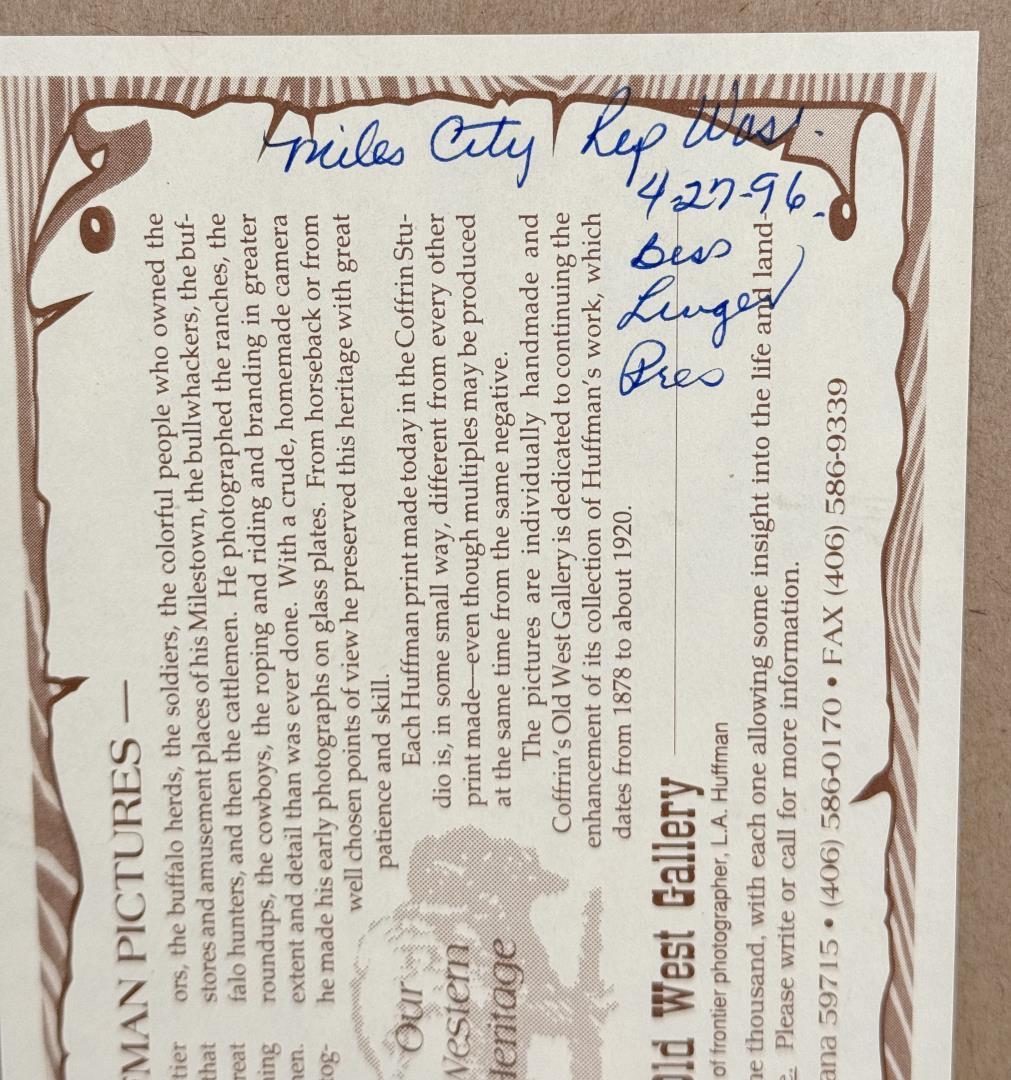 Miles City Rep
4-27-96
Bess
Linger
Pres
MAN PICTURES —
ors, the buffalo herds, the soldiers, the colorful people who owned the
stores and amusement places of his Milestown, the bullwhackers, the buf-
falo hunters, and then the cattlemen. He photographed the ranches, the
roundups, the cowboys, the roping and riding and branding in greater
extent and detail than was ever done. With a crude, homemade camera
he made his early photographs on glass plates. From horseback or from
well chosen points of view he preserved this heritage with great
patience and skill.
Each Huffman print made today in the Coffrin Stu-
dio is, in some small way, different from every other
print made—even though multiples may be produced
at the same time from the same negative.
The pictures are individually handmade and
Coffrin's Old West Gallery is dedicated to continuing the
enhancement of its collection of Huffman's work, which
dates from 1878 to about 1920.
Our
Western
Heritage
Old West Gallery
of frontier photographer, L.A. Huffman
thousand, with each one allowing some insight into the life and land-
Please write or call for more information.
ana 59715 • (406) 586-0170 • FAX (406) 586-9339